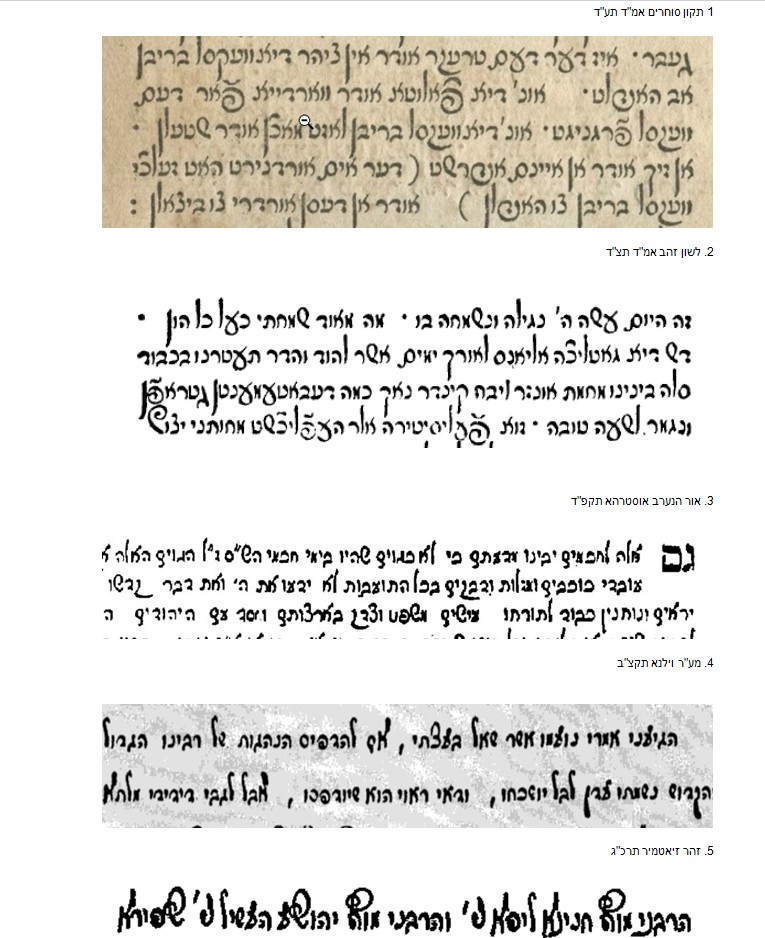 1 תקון סוחרים אמ"ד תע"ד
געבר · אינדער דעם טרעגר אודר אין ציהר דיא וועקסל בריבן
אב האנדלט · אונ' דיא פאלוטא אודר ווארדייא פאר דעם
וועגסל פרגניגט · אונ' דיא וועגסל בריבן לאנט מאכן אודר שטעלן ·
אן זיך אודר אן איינם אנדרשט ( דער אים אורדנירט האט זעלכי
וועגסל בריבן צו האנדלן ) אודר אן דעסן אורדרי צו ביצאלן :
2. לשון זהב אמ"ד תצ"ד
זה היום עשה ה' נגילה ונשמחה בו · מה מאוד שמחתי כעל כל הון ·
דש דיא גאטליכה אליאנס לאורך ימים אשר להוד והדר תעטרנו בכבוד
סלה בינינו מחמת אונזר ליבה קינדר נאך כמה דעבאטעמענטן גטראפן
ונגמר לשעה טובה · יצו"
3. אור הנערב אוסטרהא תקפ"ד
גם אלה לחכמים יבינו מדעתם כי לא כגוים שהיו בימי חכמי הש"ס ז"ל הגוים האלה
עובדי כוכבים ומזלות ודבקים בכל התועבות לא ידעו את ה' ואת דבר קדשו
יראים ונותנין כבוד לתורתו עושים משפט וצדק בארצותם וחסד עם היהודים
4. מע"ר וילנא תקצ"ב
הגיעני אמרי נועמו אשר שאל בעצתי, אם להדפיס הנהגות של רבינו הגדול
הקדוש נשמתו עדן לבל יושכחו, ודאי ראוי הוא שיודפסו, אבל לגבי דידידי מלתא
5. זהר זיאטמיר תרכ"ג
הרבני מוה חנינא ליפא ש' והרבני מוה יהושע העשיל ש' שפירא